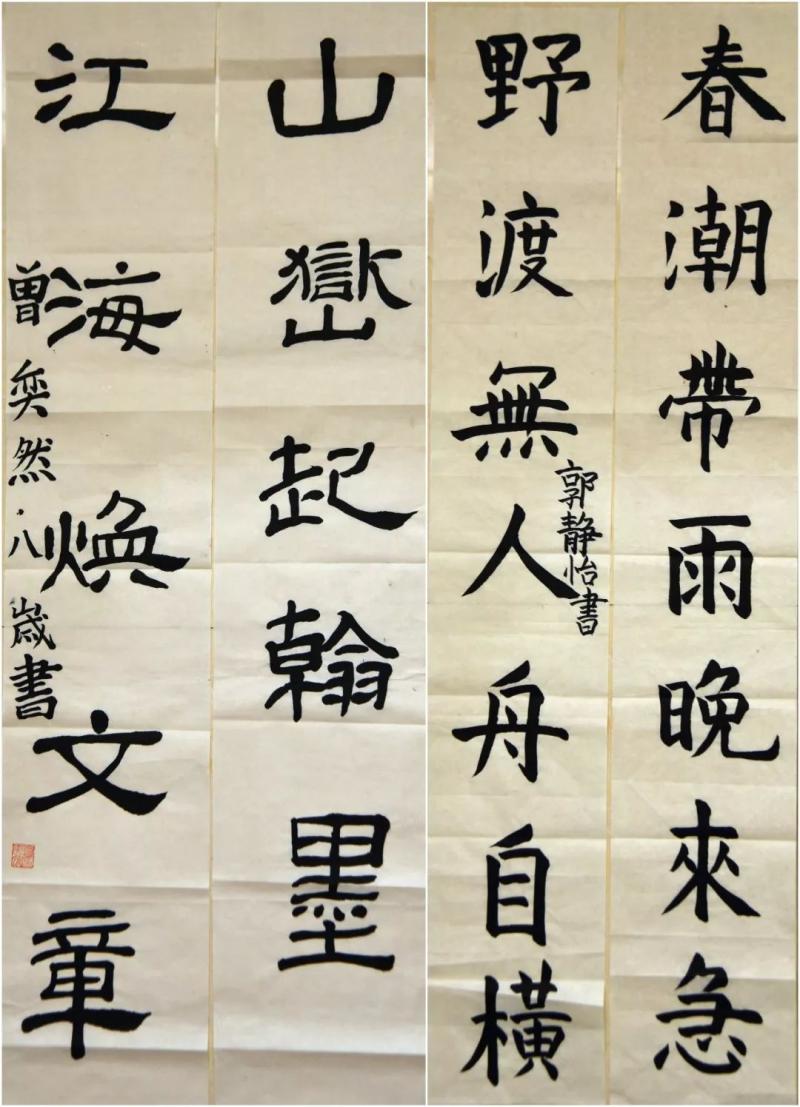 春潮帶雨晚來急
野渡無人舟自橫
郭靜怡書
山嶽起翰墨
江海焕文章
曾奕然·八歲書